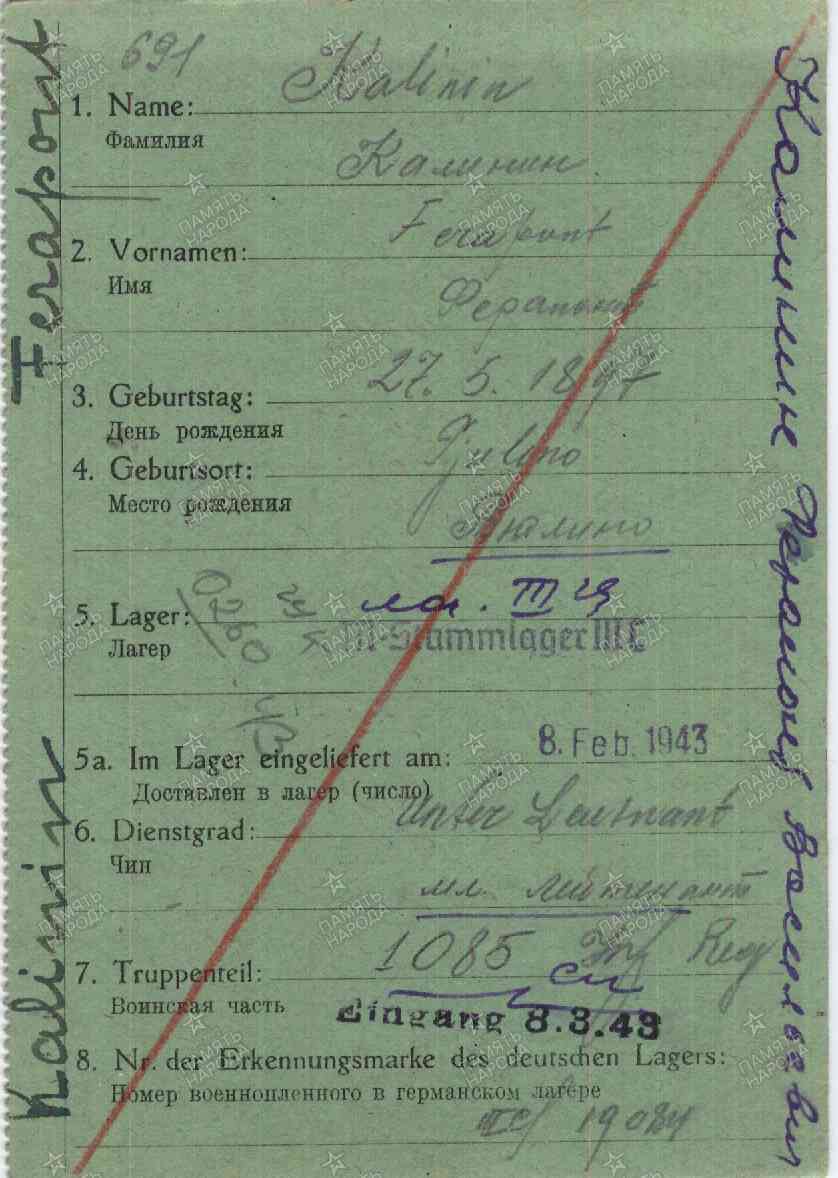 691
Kalinin
1. Name:
Фамилия
Калинин
Ferapont
2. Vornamen:
Имя
Ферапонт
27. 5. 1897
3. Geburtstag:
День рождения
Pjulino
4. Geburtsort:
Место рождения
Пюлино
ла. III
5. Lager:
Лагер
M-Stammlager III C
0260
8. Feb. 1943
5a. Im Lager eingeliefert am:
Доставлен в лагер (число)
Unter Leutnant
6. Dienstgrad:
Чин
мл. лейтенант
1085 Inf Reg
7. Truppenteil:
сп
Воинская часть
Eingang 8.3.43
8. Nr. der Erkennungsmarke des deutschen Lagers:
Номер военнопленного в германском лагере
19084
Kalinin Ferapont
Калинин Ферапонт Васильевич
ПАМЯТЬ НАРОДА